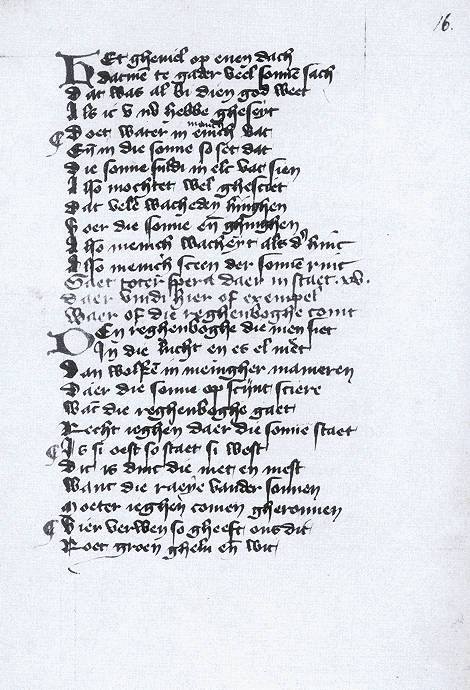 16.
Het gheviel op enen dach
datmē te gader veel sonnē sach
Dat was al bi dien god weet
Als ic v nv hebbe gheseyt
Doet water in menich vat
Eñ in die sonne so set dat
Die sonne suldi in elc vat sien
Also mochtet wel ghescien
Dat vele wacheden hinghen
Voer die sonne eñ ghinghen
Also menich
Also menich sceen der sonnē
Gaet toter spera daer in staet .xv.
daer vindi hier of exempel
Waer of die reghenboghe comt
Den reghenboghe die men siet
In die lucht en es el niet
Dan wolkē in menigher manieren
Daer die sonne op scijnt sciere
Want die reghenboghe gaet
Recht ieghen daer die sonne staet
Is si oest so staet si west
dit is dinc die niet en mest
Want die raeye vander sonnen
Moeter ieghen comen gheronnen
Vier verwen so gheeft ons dit
Roet groen ghelu eñ wit